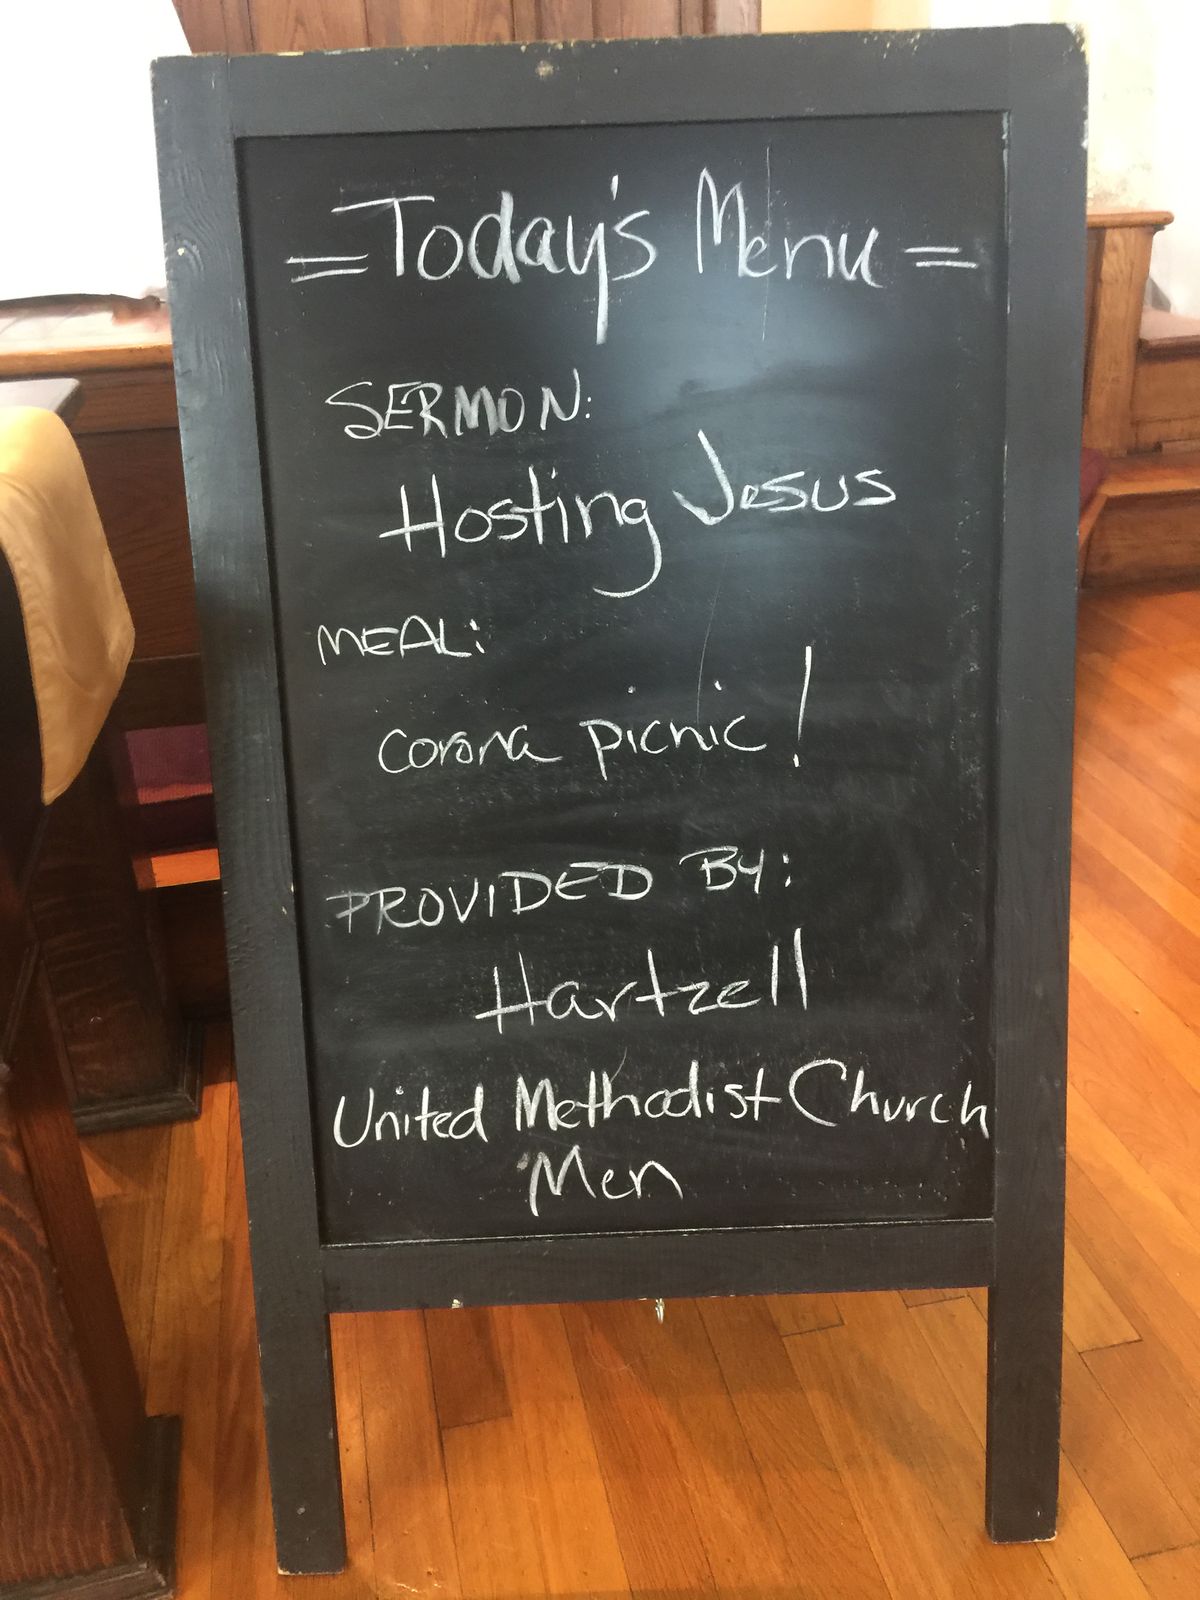 = Today's Menu =
SERMON:
Hosting Jesus
MEAL:
corona picnic!
PROVIDED BY:
Hartzell
United Methodist Church
Men